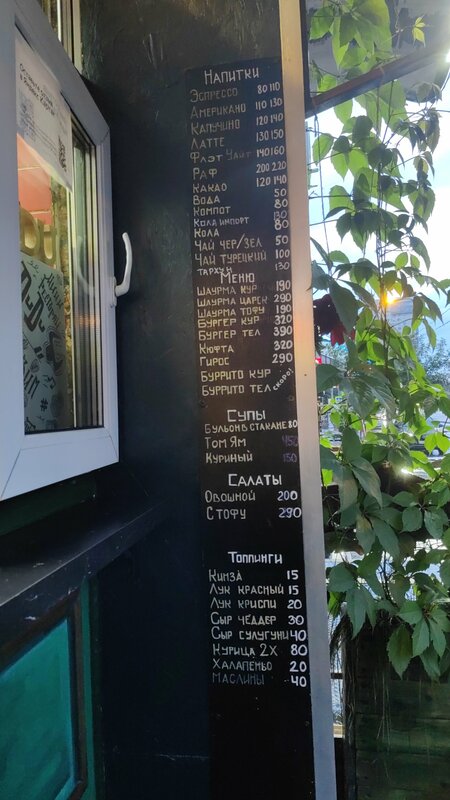 Напитки
Эспрессо 80 110
Американо 110 130
Капучино 120 140
Латте 130 150
Флэт Уайт 140 160
Раф 200 220
Какао 120 140
Вода 50
Компот 80
Кола импорт 130
Кола 80
Чай чер/зел 50
Чай турецкий 100
Тархун 130
Меню
Шаурма кур 190
Шаурма царск 290
Шаурма тофу 190
Бургер кур 320
Бургер тел 390
Кюфта 320
Гирос 290
Буррито кур
Буррито тел скоро!
Супы
Бульон в стакане 80
Том Ям 450
Куриный 150
Салаты
Овощной 200
С тофу 290
Топпинги
Кинза 15
Лук красный 15
Лук криспи 20
Сыр чеддер 30
Сыр сулугуни 40
Курица 2х 80
Халапеньо 20
Маслины 40